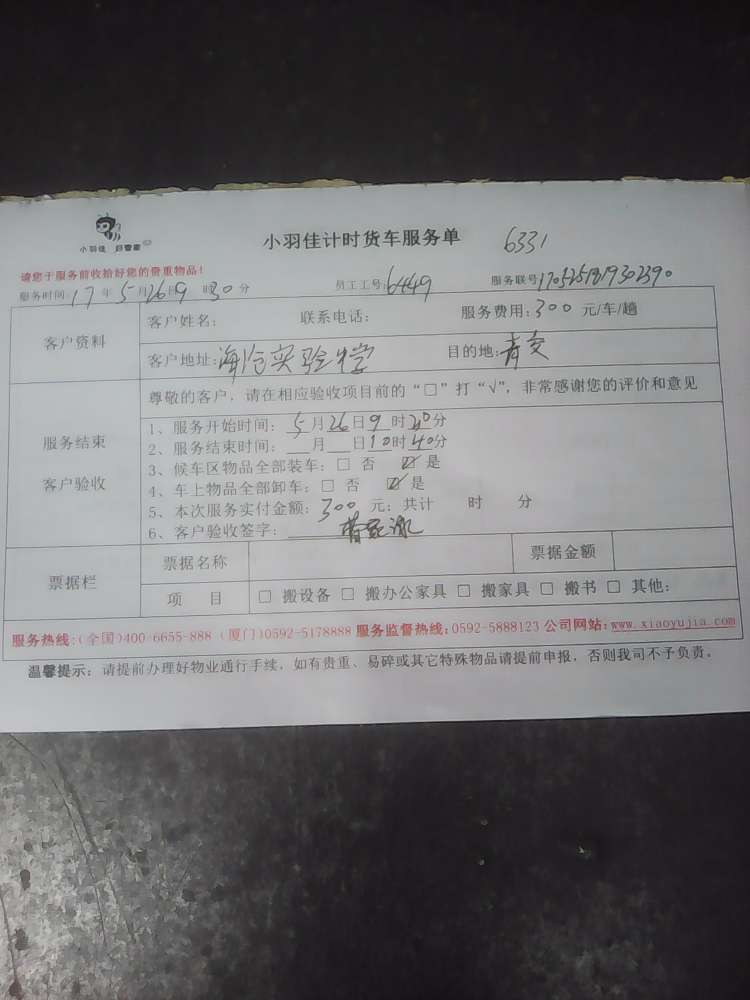 小羽佳 好管家
小羽佳计时货车服务单 6331
请您于服务前收拾好您的贵重物品！
服务时间：17年5月26日9时30分 员工工号：6449 服务联号1705251819302390
客户资料
客户姓名： 联系电话： 服务费用：300元/车/趟
客户地址：海沧实验中学 目的地：青交
服务结束
客户验收
尊敬的客户，请在相应验收项目前的“□”打“√”，非常感谢您的评价和意见
1、服务开始时间：5月26日9时20分
2、服务结束时间：__月__日10时40分
3、候车区物品全部装车：□ 否 ☑ 是
4、车上物品全部卸车：□ 否 ☑ 是
5、本次服务实付金额：300元；共计 时 分
6、客户验收签字：
票据栏
票据名称 票据金额
项 目 □ 搬设备 □ 搬办公家具 □ 搬家具 □ 搬书 □ 其他：
服务热线：(全国)400-6655-888 (厦门)0592-5178888 服务监督热线：0592-5888123 公司网站：www.xiaoyujia.com
温馨提示：请提前办理好物业通行手续，如有贵重、易碎或其它特殊物品请提前申报，否则我司不予负责。